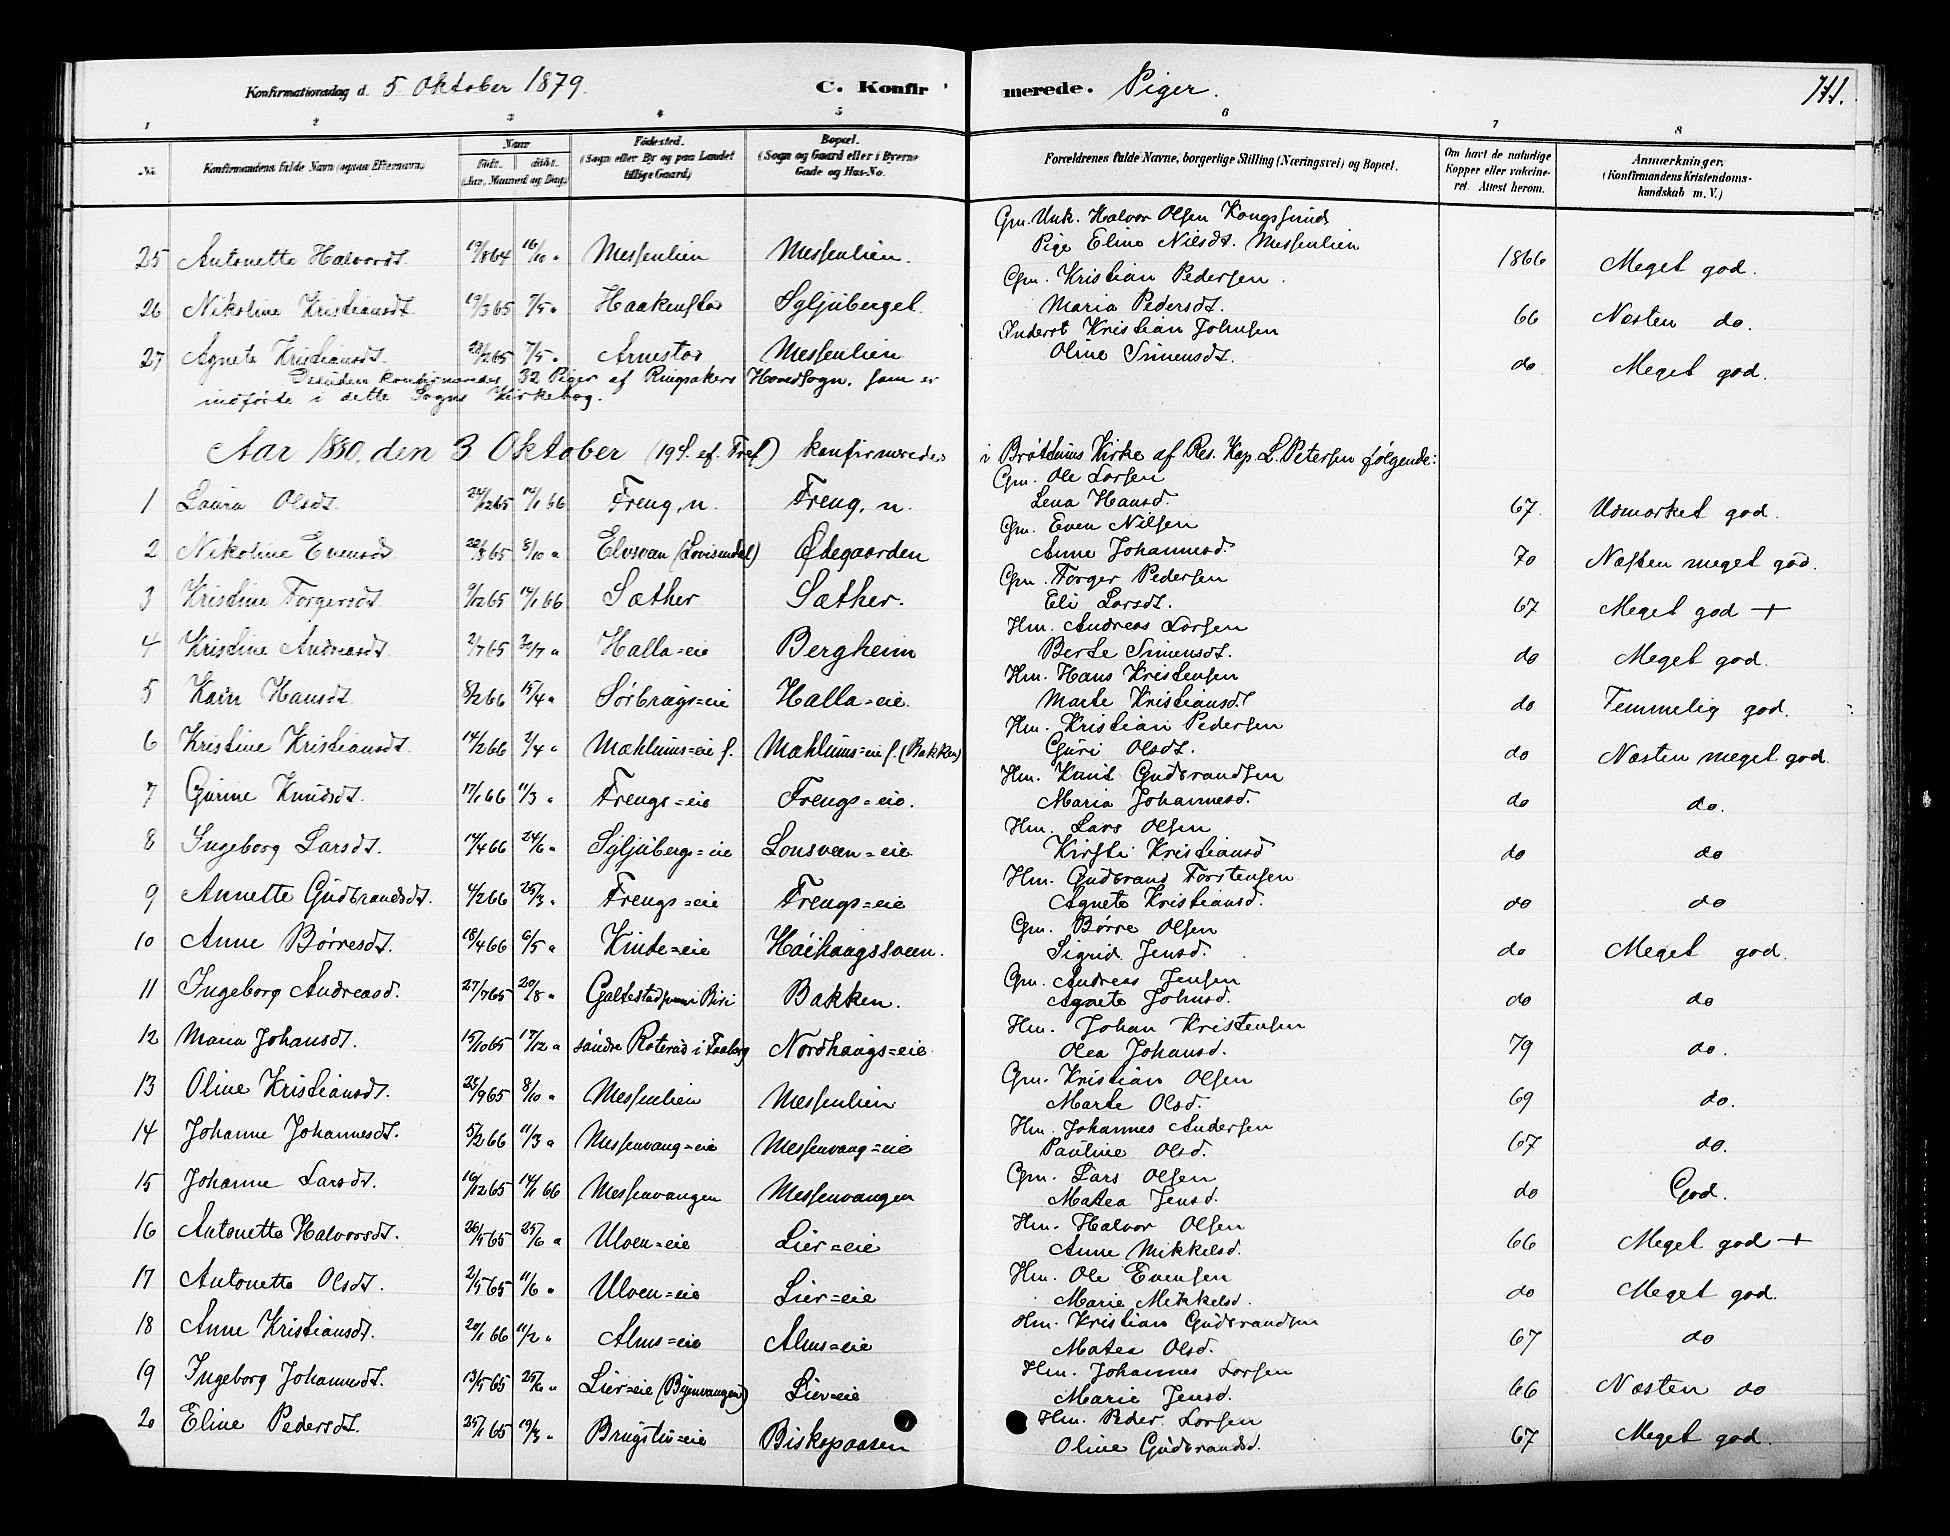 Konfirmationsdag d. 5 Oktober 1879. C. Konfir merede. Piger. 171.
1 2 3 4 5 6 7 8
No. Konfirmandens fulde Navn (ogsaa Efternavn) Naar født. døbt. (Aar, Maaned og Dag) Fødested. (Sogn eller By og paa Landet tillige Gaard) Bopæl. (Sogn og Gaard eller i Byerne Gade og Hus-No. Forældrenes fulde Navne, borgerlige Stilling (Næringsvei) og Bopæl. Om havt de naturlige Kopper eller vakcineret. Attest herom. Anmærkninger. (Konfirmandens Kristendomskundskab m. V.)
Gm. Unk. Halvor Olsen Kongssund
25 Antonette Halvorsdt. 19/8 64 16/10 " Messenlien Messenlien. Pige Eline Nilsdt. Messenlien 1866 Meget god.
Gm. Kristian Pedersen
26 Nikoline Kristiansdt. 19/3 65 7/5 " Haakenstad Sgljuberget Maria Pedersdt. 66 Næsten do.
Inderst Kristian Johnsen
27 Agnete Kristiansdt. 28/2 65 7/5 " Arnestad Messenlien Oline Simensdt. do Meget god.
Desuden konfirmeredes 32 Piger af Ringsakers Hovedsogn, som er
indførte i dette Sogns Kirkebog.
Aar 1880, den 3 Oktober (19 S. ef. Tref) konfirmeredes i Brøttums Kirke af Res. Kap. L. Petersen følgende:
Gm. Ole Larsen
1 Laura Olsdt. 26/12 65 14/1 66 Freng, n. Freng, n. Lena Hansd. 67. Udmærket god.
Gm. Even Nilsen
2 Nikoline Evensdt. 22/8 65 8/10 " Elvsveen (Lovisendal) Ødegaarden Anne Johannesd. 70 Næsten meget god.
Gm. Torger Pedersen
3 Kristine Torgersdt. 9/12 65 14/1 66 Sæther Sæther. Eli Larsdt. 67 Meget god +
Hm. Andreas Larsen
4 Kristine Andreasdt. 2/7 65 30/7 " Halla=eie Bergheim Berte Simensdt. do Meget god.
Hm. Hans Kristensen
5 Kari Hansdt. 8/2 66 15/4 " Sørbrugs=eie Halla=eie. Marte Kristiansdt do Temmelig god.
Hm. Kristian Pedersen
6 Kristine Kristiansdt. 14/2 66 2/4 " Mæhlums=eie s. Mæhlums=eie s. (Bakken) Guri Olsdt. do Næsten meget god.
Hm. Knut Gudbrandsen
7 Gurine Knudsdt. 17/1 66 11/3 " Frengs=eie Frengs=eie. Maria Johannesd. do do.
Hm. Lars Olsen
8 Ingeborg Larsdt. 14/4 66 24/6 " Sgljubergs=eie Lonsveen=eie Kirsti Kristiansd do do
Hm. Gudbrand Torstensen
9 Annette Gudbrandsdt. 4/2 66 25/3 " Frengs=eie Frengs=eie Agnete Kristiansd. do do
Gm. Børre Olsen
10 Anne Børresdt. 18/4 66 6/5 " Kinde=eie Høihaugssveen. Sigrid Jensd. do Meget god.
Gm. Andreas Jensen
11 Ingeborg Andreasd. 27/7 65 20/8 " Galtestad i Biri Bakken. Agnete Johnsd. do do
Hm. Johan Kristensen
12 Maria Johansdt. 15/10 65 17/12 " søndre Roterud i Faaberg Nordhaugs=eie Olea Johansd. 79 do.
Gm. Kristian Olsen
13 Oline Kristiansdt. 25/9 65 8/10 " Messenlien Messenlien Marte Olsd. 69 do.
Hm. Johannes Andersen
14 Johanne Johannesdt. 5/2 66 11/3 " Messenvang=eie Messenvang=eie Pauline Olsd. 67 do.
Gm. Lars Olsen
15 Johanne Larsdt. 16/12 65 14/1 66 Messenvangen Messenvangen Matea Jensd. do God.
Hm. Halvor Olsen
16 Antonette Halvorsdt. 26/5 65 25/6 " Ulven=eie Lier=eie Anne Mikkelsd. 66 Meget god +
Hm. Ole Evensen
17 Antonette Olsdt. 2/5 65 11/6 " Ulven=eie Lier=eie Marie Mikkelsd. do Meget god.
Hm. Kristian Gudbrandsen
18 Anne Kristiansdt. 20/1 66 11/2 " Alms=eie Alms=eie Matea Olsd. 67 do
Hm. Johannes Larsen
19 Ingeborg Johannesdt. 13/5 65 25/6 " Lier=eie Lier=eie Marie Jensd. 66 Næsten do
Hm. Peder Larsen
20 Eline Pedersdt. 25/1 65 19/3 " Brugstu=eie Biskepaasen Oline Gudbrandsd. 67 Meget god.